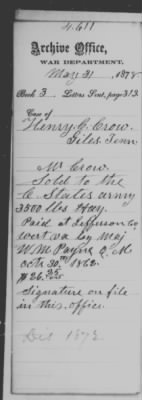 4.611
Archive Office,
WAR DEPARTMENT,
May 31, 1878
Book 3 Letters Sent, page 313.
Case of
Henry G. Crow.
Giles Tenn.
Mr Crow
Sold to the
C. States army
3500 lbs Hay.
Paid at Jefferson Co
West va by Maj
W. M. Payne Q. M
Octr 30th 1862
$26.25
Signature on file
in this office.
Dis 1878